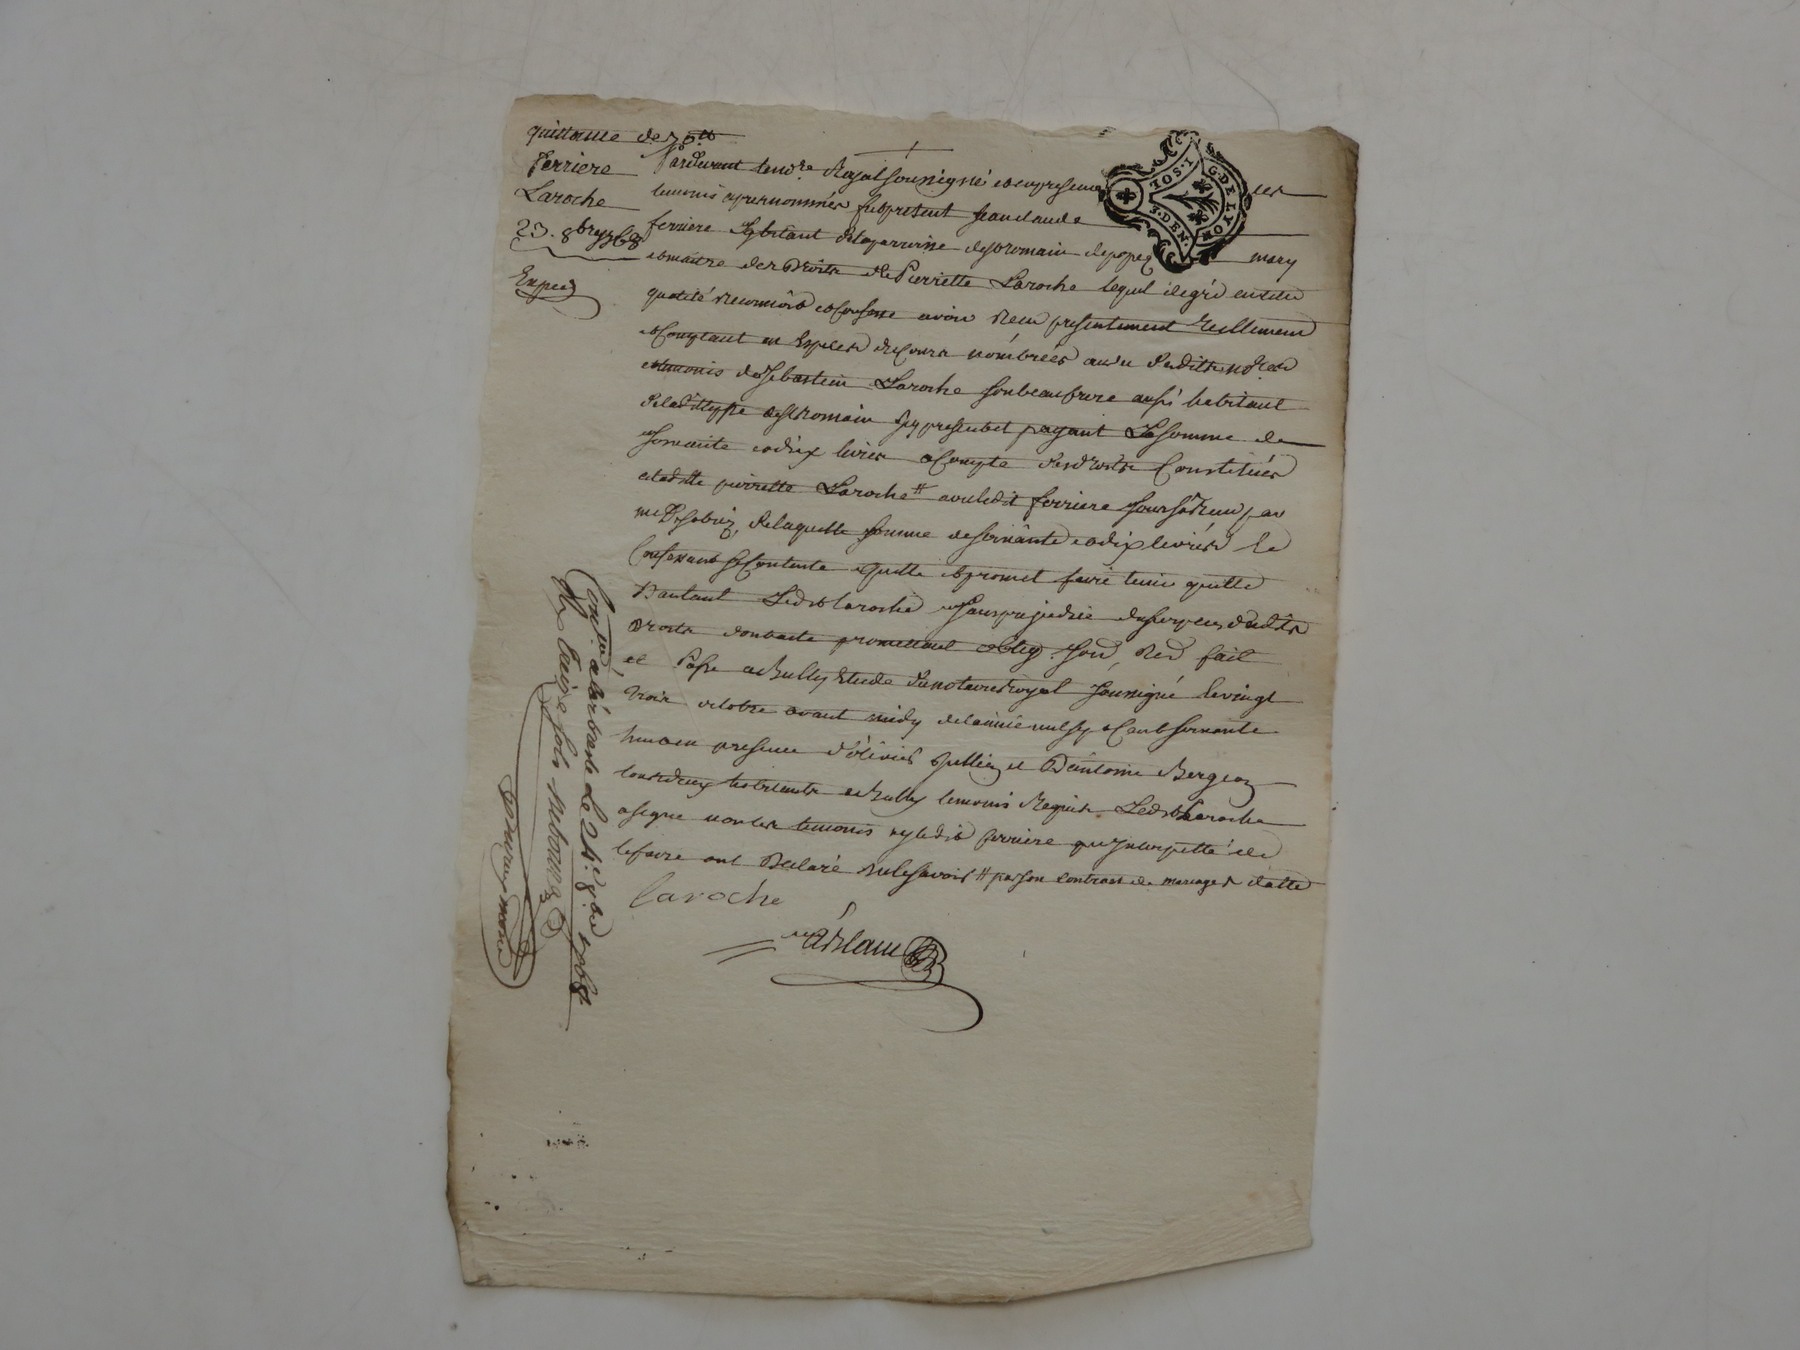 quittance de 70ᵗᵗ
ferriere
Laroche
23. 8bre 1768
Exped
Pardevant le no.re Royal soussigné et en presence des
temoins apres nommés fut present jean claude
ferriere habitant de la parroisse de st Romain de popey mary
et maitre des Droits de Pierrette Laroche lequel de gré en cette
qualité reconnoit et confesse avoir Reçu presentement reellement
et Comptant en Especes de Cours nombrées au vu dudit no.re et
temoins de Sebastien Laroche son beau frere aussi habitant
de la ditte psse de st Romain icy present et payant La somme de
soixante et dix livres a Compte des droits Constitués
a la ditte pierrette Laroche # avec ledit ferriere
de laquelle somme de soixante et dix livres le
Confessant se Contente quitte et promet faire tenir quitte
D'autant Ledit Laroche sans prejudice du surplus desdits
droits dont acte promettant oblig. fait
et Passé a Bully Etude du notaire royal soussigné le vingt
trois octobre avant midy de l'année mil sept Cent soixante
huit en presence d'olivier et D'antoine Bergeon
tous deux habitants a Bully temoins Requis Ledit Laroche
a signé non les temoins ny ledit ferriere qui Interpellé de
le faire ont Declaré ne le savoir # par son Contrat de mariage datté
laroche
Con.lé a Larbresle Le 24.e 8.bre 1768
I.SOL
G.DE LYON
3.DEN.